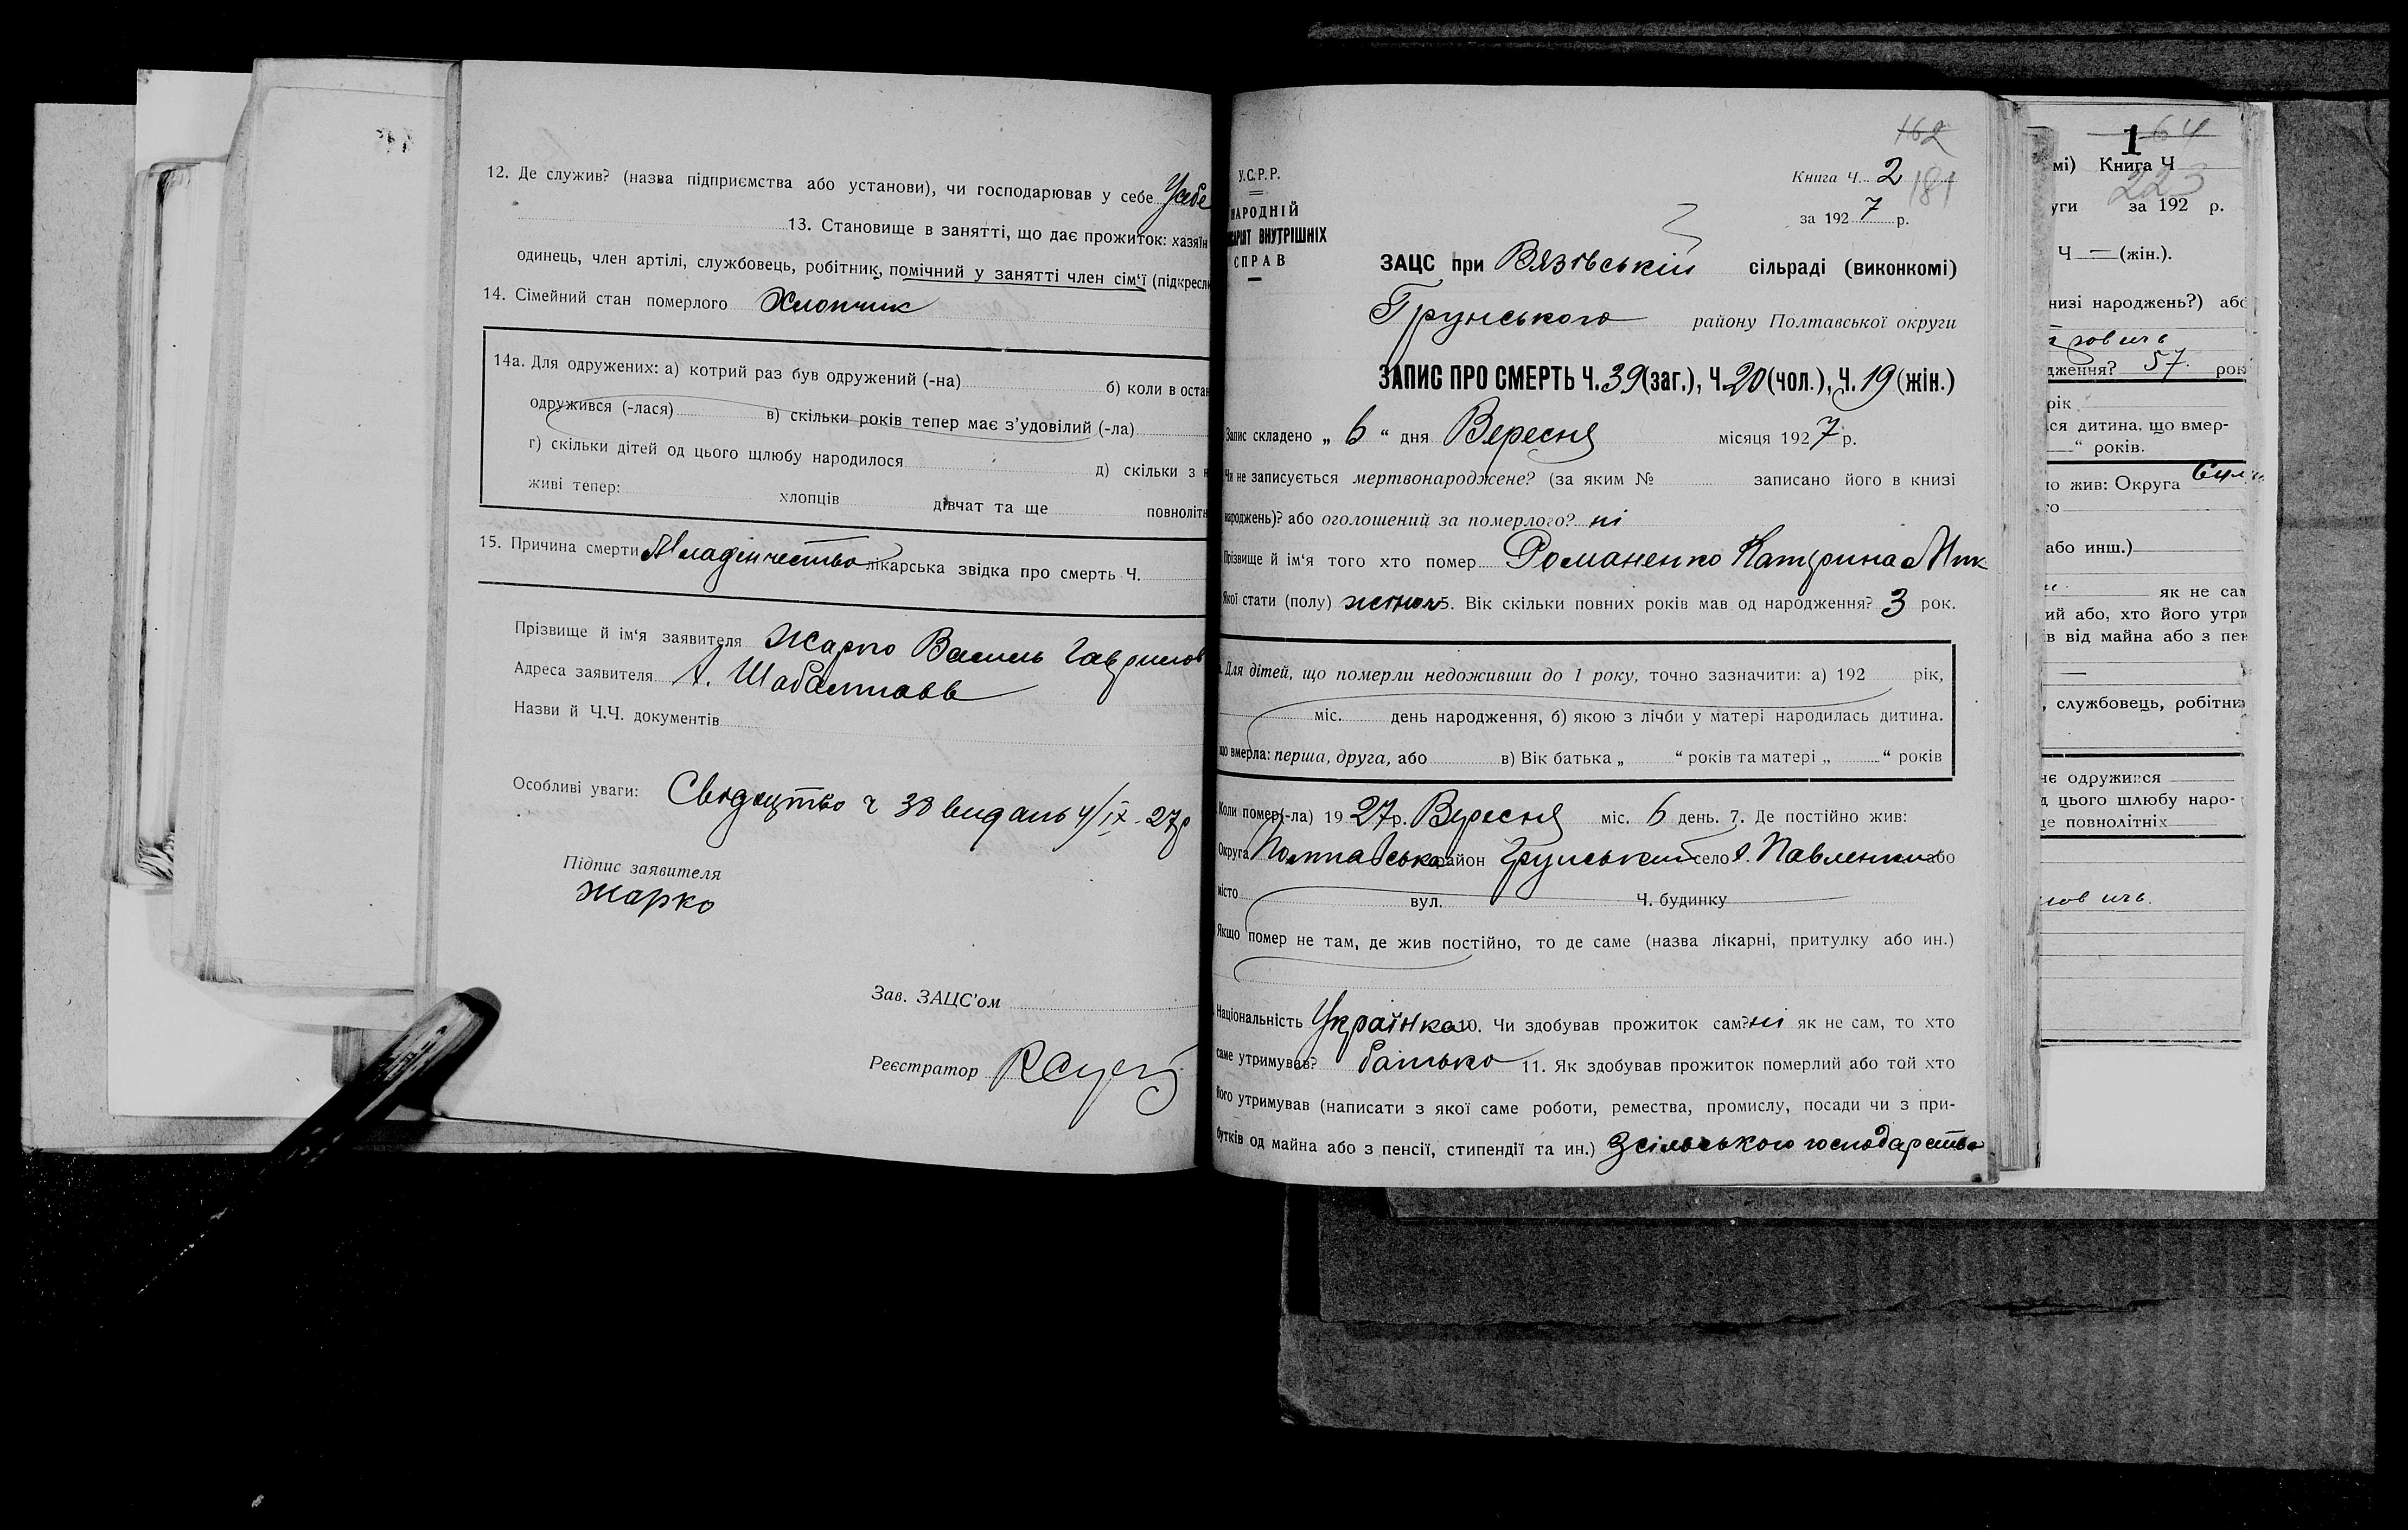 12. Де служив? (назва підприємства або установи), чи господарював у себе Усебе
13. Становище в занятті, що дає прожиток: хазяїн
одинець, член артілі, службовець, робітник, помічний у занятті член сім'ї (підкресли
14. Сімейний стан померлого Хлопчик
14а. Для одружених: а) котрий раз був одружений (-на) б) коли в оста
одружився (-лася) в) скільки років тепер має з'удовілий (-ла)
г) скільки дітей од цього щлюбу народилося д) скільки з н
живі тепер: хлопців дівчат та ще повноліт
15. Причина смерти Младінчество лікарська звідка про смерть Ч.
Прізвище й ім'я заявителя Жарко Василь Гаврилов
Адреса заявителя х. Шабалтаєв
Назви й Ч.Ч. документів
Особливі уваги: Свідоцтво ч 38 видань 4/IX-27р
Підпис заявителя
Жарко
Зав. ЗАЦС'ом
Реєстратор
162
У.С.Р.Р.
НАРОДНІЙ
АРІЯТ ВНУТРІШНІХ
СПРАВ
Книга Ч. 2 181
за 1927 р.
ЗАЦС при Вязівській сільраді (виконкомі)
Грунського району Полтавської округи
ЗАПИС ПРО СМЕРТЬ Ч. 39 (заг.), Ч. 20 (чол.), Ч. 19 (жін.)
Запис складено „ 6 “ дня Вересня місяця 1927 р.
Чи не записується мертвонароджене? (за яким № записано його в книзі
народжень)? або оголошений за померлого? ні
Прізвище й ім'я того хто помер Романенко Катрина Мик
Якої стати (полу) жіноч 5. Вік скільки повних років мав од народження? 3 рок.
Для дітей, що померли недоживши до 1 року, точно зазначити: а) 192 рік,
міс. день народження, б) якою з лічби у матері народилась дитина.
що вмерла: перша, друга, або в) Вік батька „ “ років та матері „ “ років
Коли помер(-ла) 1927 р. Вересня міс. 6 день. 7. Де постійно жив:
Округа Полтавська район Грунський село х. Павленки або
місто вул. Ч. будинку
Якщо помер не там, де жив постійно, то де саме (назва лікарні, притулку або ин.)
Національність Українка 10. Чи здобував прожиток сам? ні як не сам, то хто
саме утримував? батько 11. Як здобував прожиток померлий або той хто
його утримував (написати з якої саме роботи, ремества, промислу, посади чи з при-
бутків од майна або з пенсії, стипендії та ин.) З сільського господарства
1 64
мі) Книга Ч
223
уги за 192 р.
Ч — (жін.).
низі народжень?) або
ович
дження? 57 рок
рік
ся дитина, що вмер-
“ років.
о жив: Округа
го
або инш.)
як не сам
ий або, хто його утри
в від майна або з пен
, службовець, робітни
не одружився
д цього шлюбу наро-
ще повнолітніх
ович